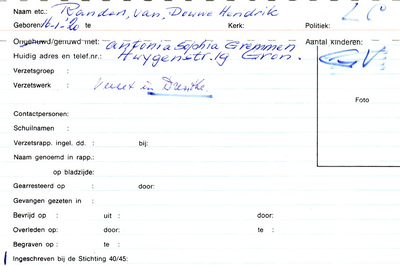 Naam etc: Randen, van, Douwe Hendrik
Geboren: 16-1-'20 te Kerk: Politiek:
Ongehuwd/gehuwd met: Antonia Sophia Gremmen Aantal kinderen:
Huidig adres en telef.nr.: Huygenstr. 19 Gron.
Verzetsgroep :
Verzetswerk : Verzet in Drenthe.
Foto
Contactpersonen:
Schuilnaam :
Verzetsrapp. ingel. dd. : bij:
Naam genoemd in rapp.:
op bladzijde:
Gearresteerd op : door:
Gevangen gezeten in :
Bevrijd op : uit : door:
Overleden op : door: te :
Begraven op : te :
Ingeschreven bij de Stichting 40/45: